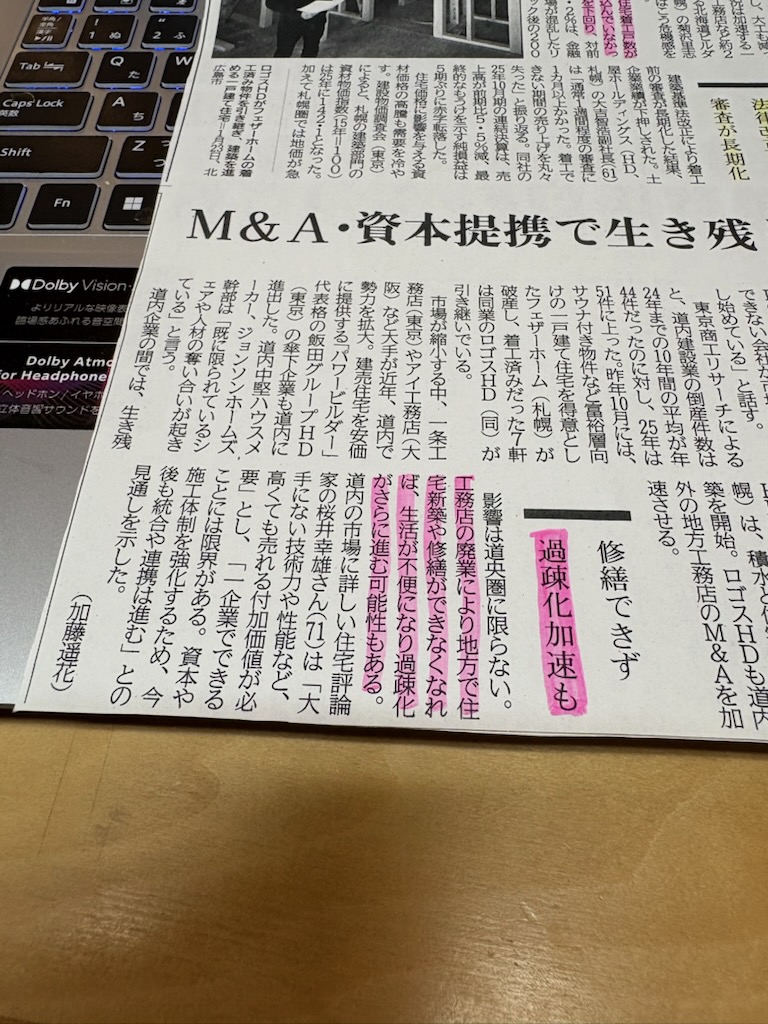 住宅着工戸数が
込んでいなかっ
を下回り、対前
・2％は、金融
場が混乱したリ
ック後の200
法律改
審査が長期化
建築基準法改正により着工
前の審査が長期化した結果、
企業業績が下押しされた。土
屋ホールディングス（HD、
札幌）の大吉智浩副社長（61）
は「通常1週間程度の審査に
1カ月以上かかった。着工で
きない期間の売り上げを丸々
失った」と振り返る。同社の
25年10月期の連結決算は、売
上高が前期比5・5％減、最
終的なもうけを示す純損益は
5期ぶりに赤字転落した。
住宅価格に影響を与える資
材価格の高騰も需要を冷や
す。建設物価調査会（東京）
によると、札幌の建築部門の
資材物価指数（15年＝100）
は25年に142・1となった。
加えて札幌圏では地価が急
ロゴスHDがフェザーホームの着
工済み物件を引き継ぎ、建築を進
める一戸建て住宅＝1月29日、北
広島市
M＆A・資本提携で生き残
できない会社が市場
し始めている」と話す。
東京商工リサーチによる
と、道内建設業の倒産件数は
24年までの10年間の平均が年
44件だったのに対し、25年は
51件に上った。昨年10月には、
サウナ付き物件など富裕層向
けの一戸建て住宅を得意とし
たフェザーホーム（札幌）が
破産し、着工済みだった7軒
は同業のロゴスHD（同）が
引き継いでいる。
市場が縮小する中、一条工
務店（東京）やアイ工務店（大
阪）など大手が近年、道内で
勢力を拡大。建売住宅を安価
に提供する「パワービルダー」
代表格の飯田グループHD
（東京）の傘下企業も道内に
進出した。道内中堅ハウスメ
ーカー、ジョンソンホームズ
幹部は「既に限られているシ
ェアや人材の奪い合いが起き
ている」と言う。
道内企業の間では、生き残
幌）は、積水と
築を開始。ロゴスHDも道内
外の地方工務店のM＆Aを加
速させる。
修繕できず
過疎化加速も
影響は道央圏に限らない。
工務店の廃業により地方で住
宅新築や修繕ができなくなれ
ば、生活が不便になり過疎化
がさらに進む可能性もある。
道内の市場に詳しい住宅評論
家の桜井幸雄さん（71）は「大
手にない技術力や性能など、
高くても売れる付加価値が必
要」とし、「一企業でできる
ことには限界がある。資本や
施工体制を強化するため、今
後も統合や連携は進む」との
見通しを示した。
（加藤遥花）
半角/
全角
漢字
Tab
Q
た
Caps Lock
英数
A
ち
Shift
Z
Fn
Dolby Vision
よりリアルな映像表
臨場感あふれる音空間
Dolby Atmo
for Headphone
ヘッドホン/イヤホ
立体音響サウンドを